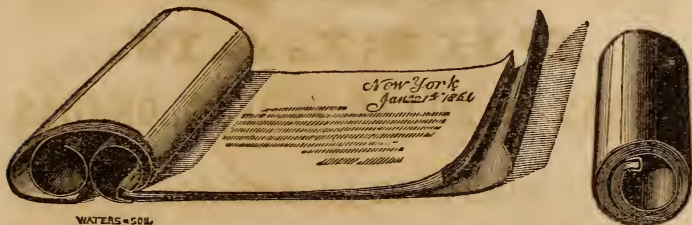 New York
Jan 21st 1866
WATERS & SON